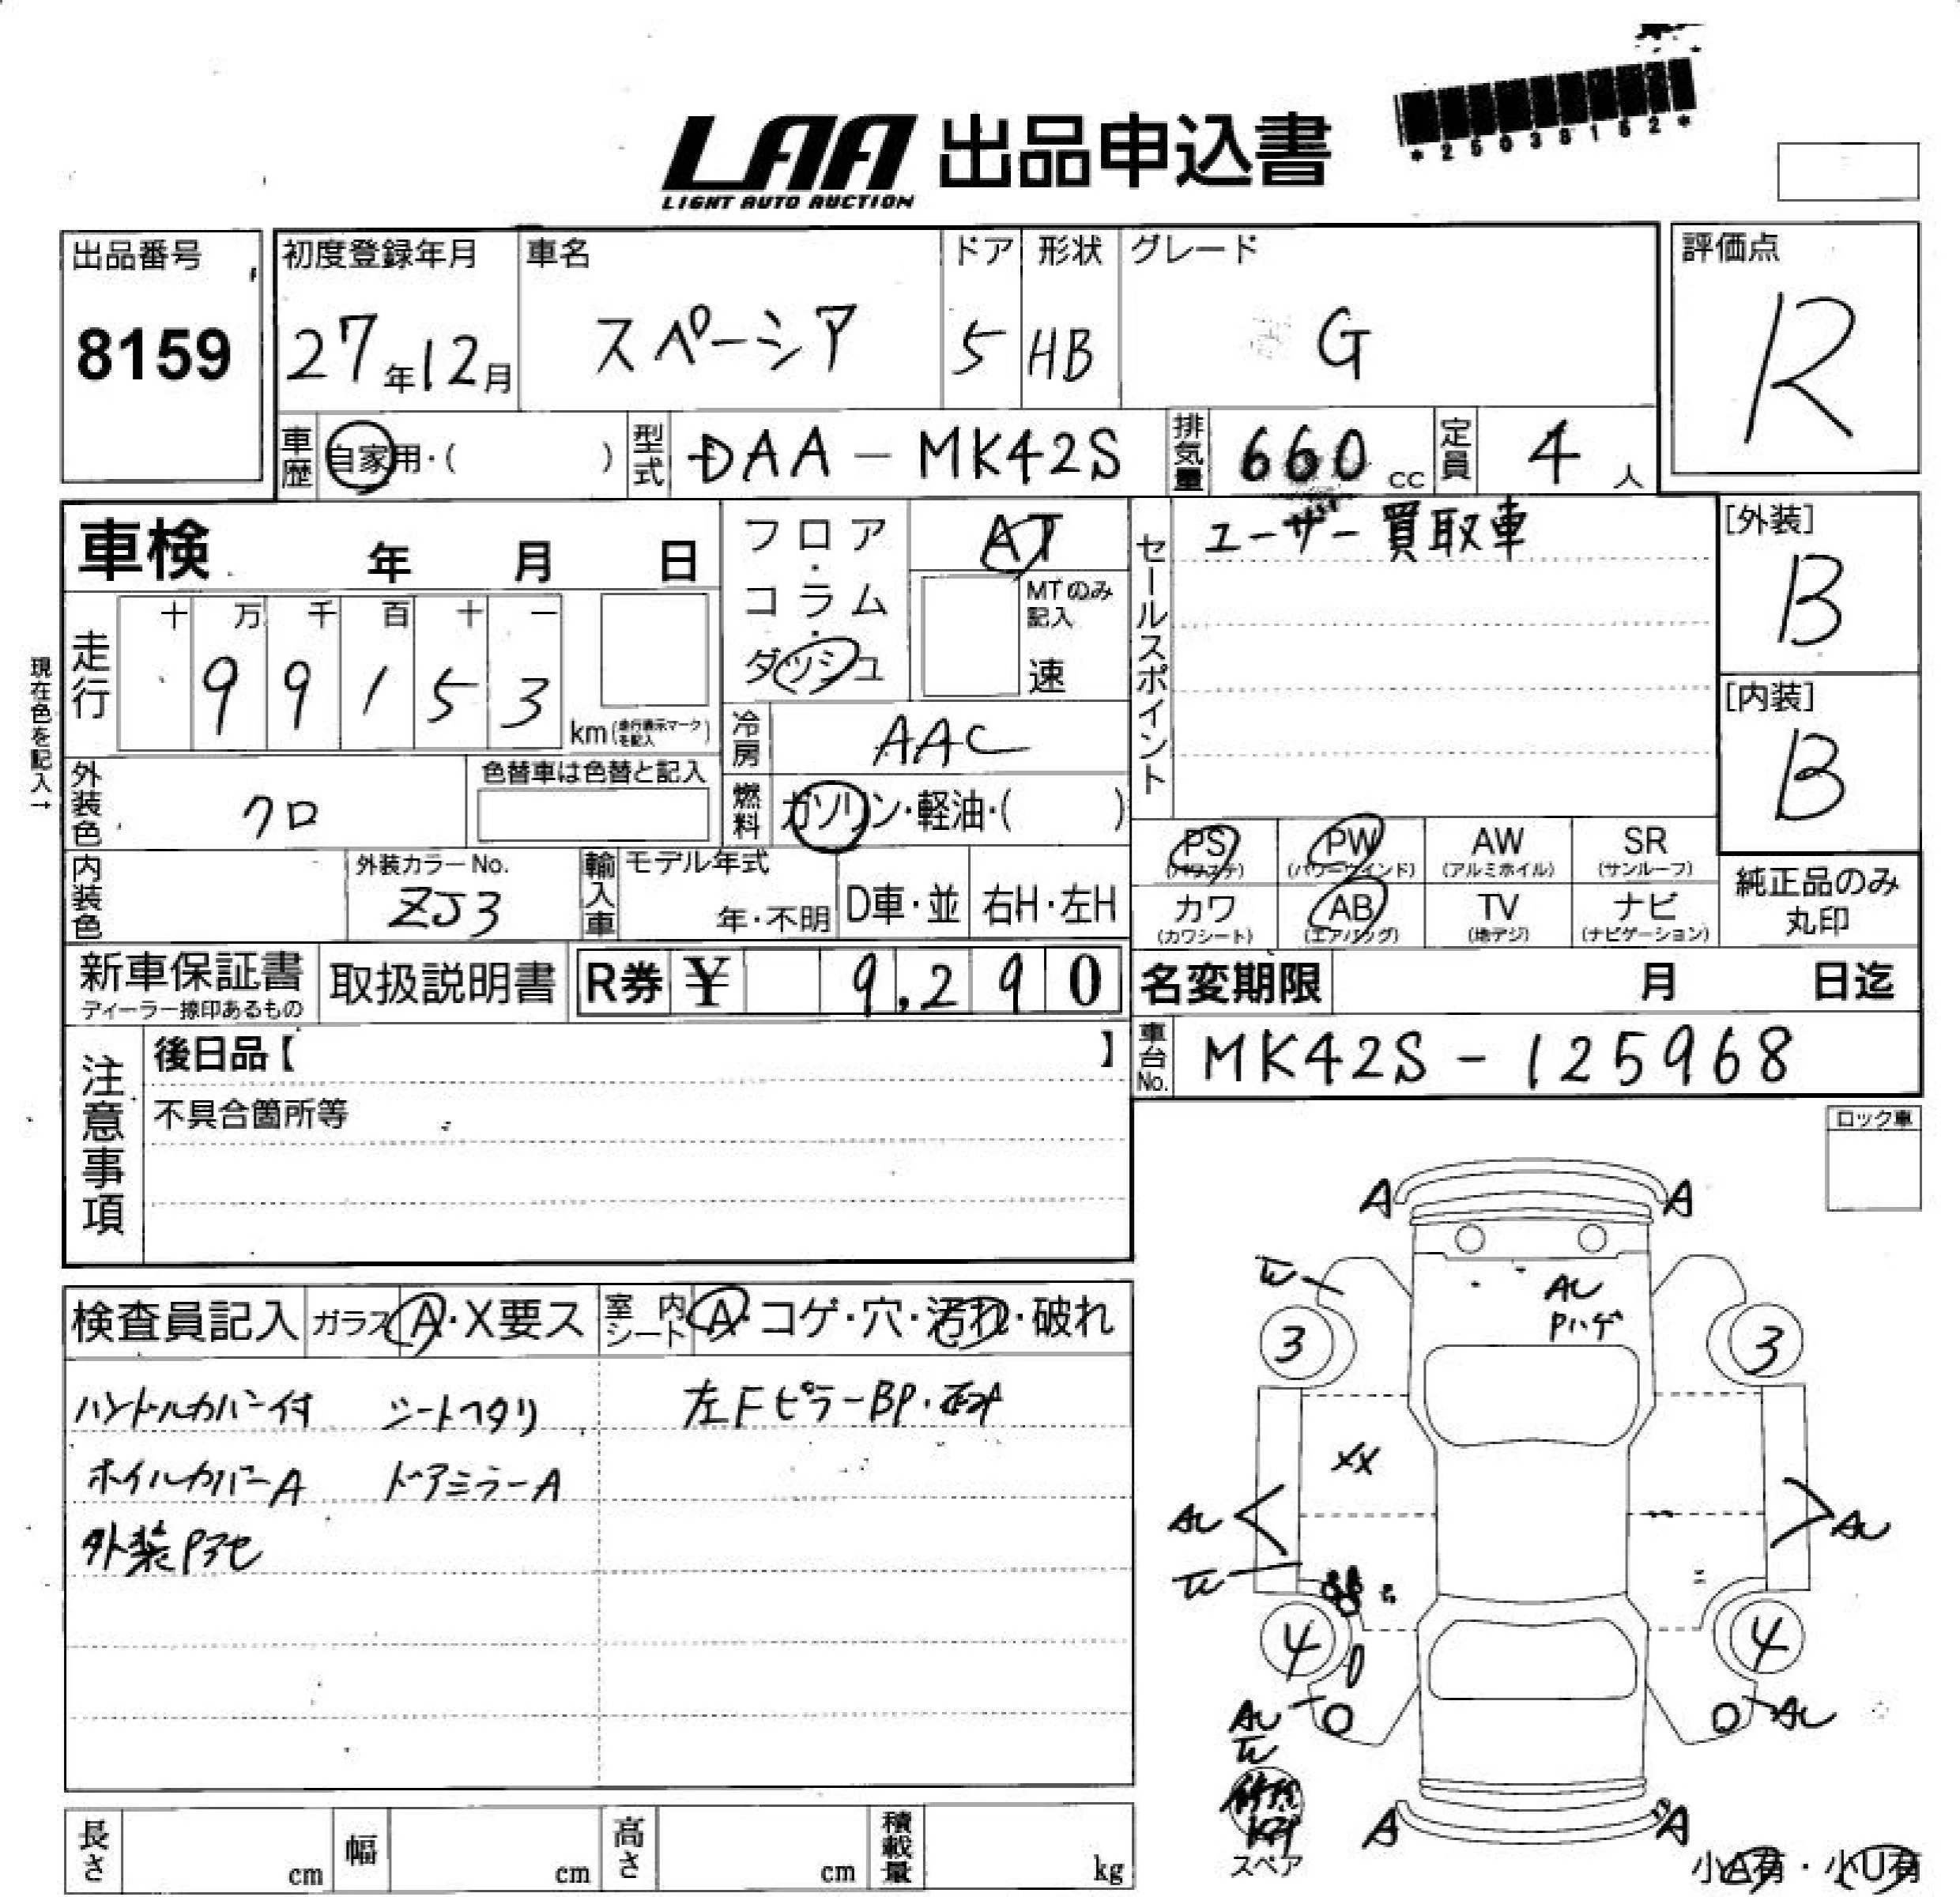 *25038152*
LAA 出品申込書
LIGHT AUTO AUCTION
出品番号
8159
初度登録年月
27年12月
車名
スペーシア
ドア
5
形状
HB
グレード
G
評価点
R
車歴 自家用・( )
型式 DAA-MK42S
排気量 660 cc
定員 4 人
車検 年 月 日
フロア・コラム・ダッシュ
AT
MTのみ記入
速
セールスポイント
ユーザー買取車
[外装]
B
[内装]
B
現在色を記入→
走行
十 万 千 百 十 一
9 9 1 5 3
km(走行表示マークを記入)
冷房 AAC
外装色 クロ
色替車は色替と記入
燃料 ガソリン・軽油・( )
PS PW AW SR
(パワステ) (パワーウインド) (アルミホイル) (サンルーフ)
カワ AB TV ナビ
(カワシート) (エアバッグ) (地デジ) (ナビゲーション)
純正品のみ
丸印
内装色
外装カラーNo.
ZJ3
輸入車
モデル年式
年・不明
D車・並
右H・左H
新車保証書
ディーラー捺印あるもの
取扱説明書
R券 ¥ 9,290
名変期限 月 日迄
注意事項
後日品【 】
不具合箇所等
車台No. MK42S-125968
ロック車
検査員記入
ガラス A・X要ス
室内シート A・コゲ・穴・汚れ・破れ
ハンドルカバー付 シートヘタリ 左FピラーBP・
ホイルカバーA ドアミラーA
外装Pアセ
A A
AU
Pハゲ
3 3
XX
AU AU
4 4
AU AU
A A
スペア
小A有・小U有
長さ cm
幅 cm
高さ cm
積載量 kg